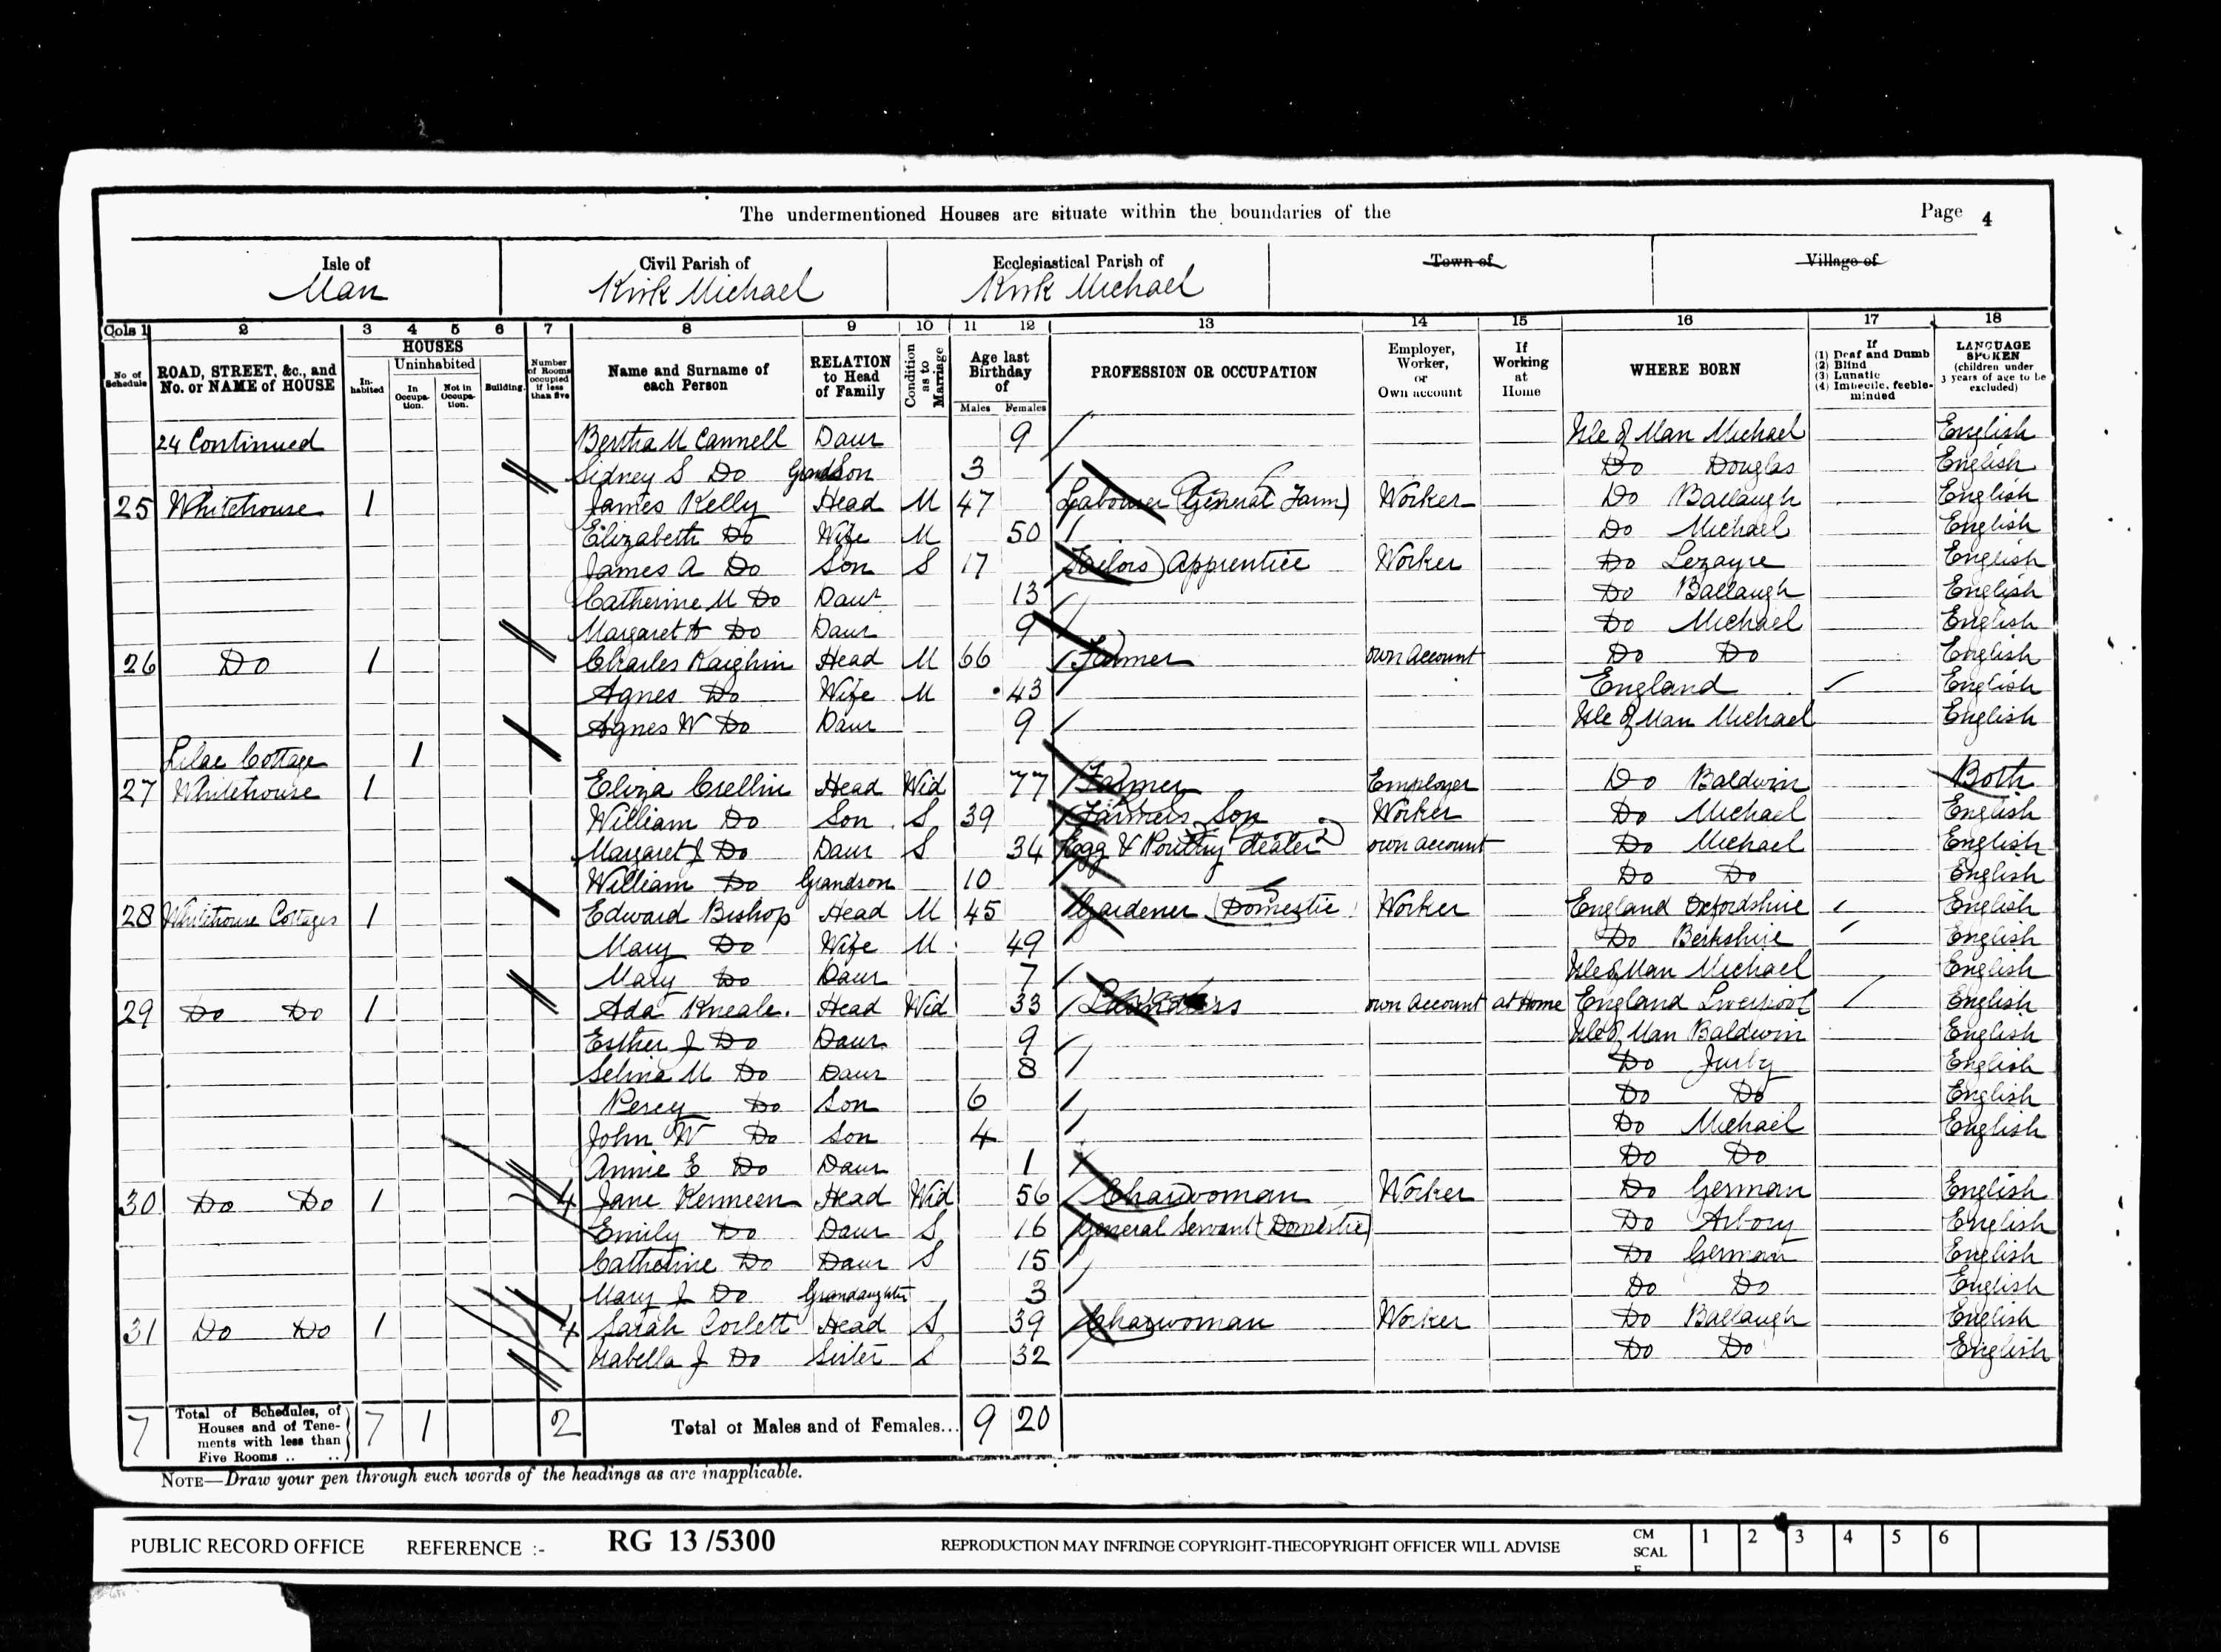 The undermentioned Houses are situate within the boundaries of the Page 4
Isle of Man
Civil Parish of Kirk Michael
Ecclesiastical Parish of Kirk Michael
Town of
Village of
Cols 1 2 3 4 5 6 7 8 9 10 11 12 13 14 15 16 17 18
No of Schedule
ROAD, STREET, &c., and No. or NAME of HOUSE
HOUSES
Inhabited
Uninhabited
In Occupation.
Not in Occupation.
Building.
Number of Rooms occupied if less than five
Name and Surname of each Person
RELATION to Head of Family
Condition as to Marriage
Age last Birthday of
Males Females
PROFESSION OR OCCUPATION
Employer, Worker, or Own account
If Working at Home
WHERE BORN
If (1) Deaf and Dumb (2) Blind (3) Lunatic (4) Imbecile, feeble-minded
LANGUAGE SPOKEN (children under 3 years of age to be excluded)
24 Continued Bertha M Cannell Daur 9 Isle of Man Michael English
Sidney S Do GrandSon 3 Do Douglas English
25 Whitehouse 1 James Kelly Head M 47 Labourer (General Farm) Worker Do Ballaugh English
Elizabeth Do Wife M 50 Do Michael English
James A Do Son S 17 Tailors Apprentice Worker Do Lezayre English
Catherine M Do Daur 13 Do Ballaugh English
Margaret A Do Daur 9 Do Michael English
26 Do 1 Charles Kaighin Head M 66 Farmer own account Do Do English
Agnes Do Wife M 43 England English
Agnes W Do Daur 9 Isle of Man Michael English
Lilac Cottage 1
27 Whitehouse 1 Eliza Crellin Head Wid 77 Farmer Employer Do Baldwin Both
William Do Son S 39 Farmers Son Worker Do Michael English
Margaret J Do Daur S 34 Egg & Poultry dealer own account Do Michael English
William Do Grandson 10 Do Do English
28 Whitehouse Cottages 1 Edward Bishop Head M 45 Gardener (Domestic) Worker England Oxfordshire English
Mary Do Wife M 49 Do Berkshire English
Mary Do Daur 7 Isle of Man Michael English
29 Do Do 1 Ada Kneale. Head Wid 33 Laundress own account at Home England Liverpool English
Esther J Do Daur 9 Isle of Man Baldwin English
Selina M Do Daur 8 Do Jurby English
Percy Do Son 6 Do Do English
John W Do Son 4 Do Michael English
Annie E Do Daur 1 Do Do
30 Do Do 1 4 Jane Kenneen Head Wid 56 Charwoman Worker Do German English
Emily Do Daur S 16 General Servant (Domestic) Do Arbory English
Catherine Do Daur S 15 Do German English
Mary J Do Grandaughter 3 Do Do English
31 Do Do 1 4 Sarah Corlett Head S 39 Charwoman Worker Do Ballaugh English
Isabella J Do Sister S 32 Do Do English
7 Total of Schedules, of Houses and of Tenements with less than Five Rooms .. .. 7 1 2 Total of Males and of Females... 9 20
NOTE—Draw your pen through such words of the headings as are inapplicable.
PUBLIC RECORD OFFICE REFERENCE :- RG 13 /5300 REPRODUCTION MAY INFRINGE COPYRIGHT-THECOPYRIGHT OFFICER WILL ADVISE CM SCAL E 1 2 3 4 5 6